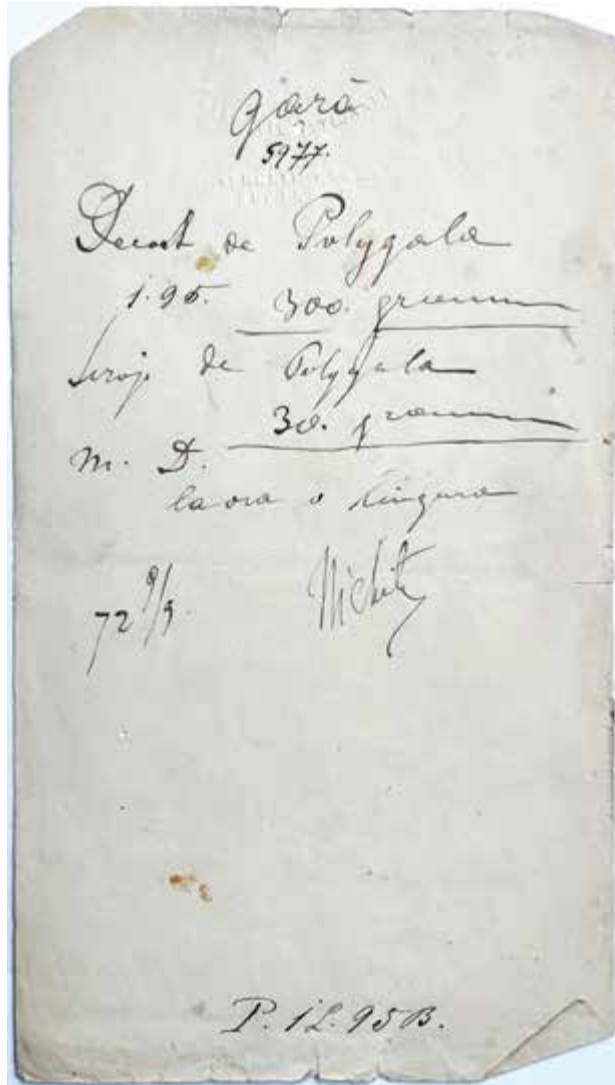 gară
5977.
Decoct de Polygala
1.95. 300. gramm
Sirop de Polygala
30. gramm
M. D.
la ora o lingura
72 9/9.
P. 1L. 95B.